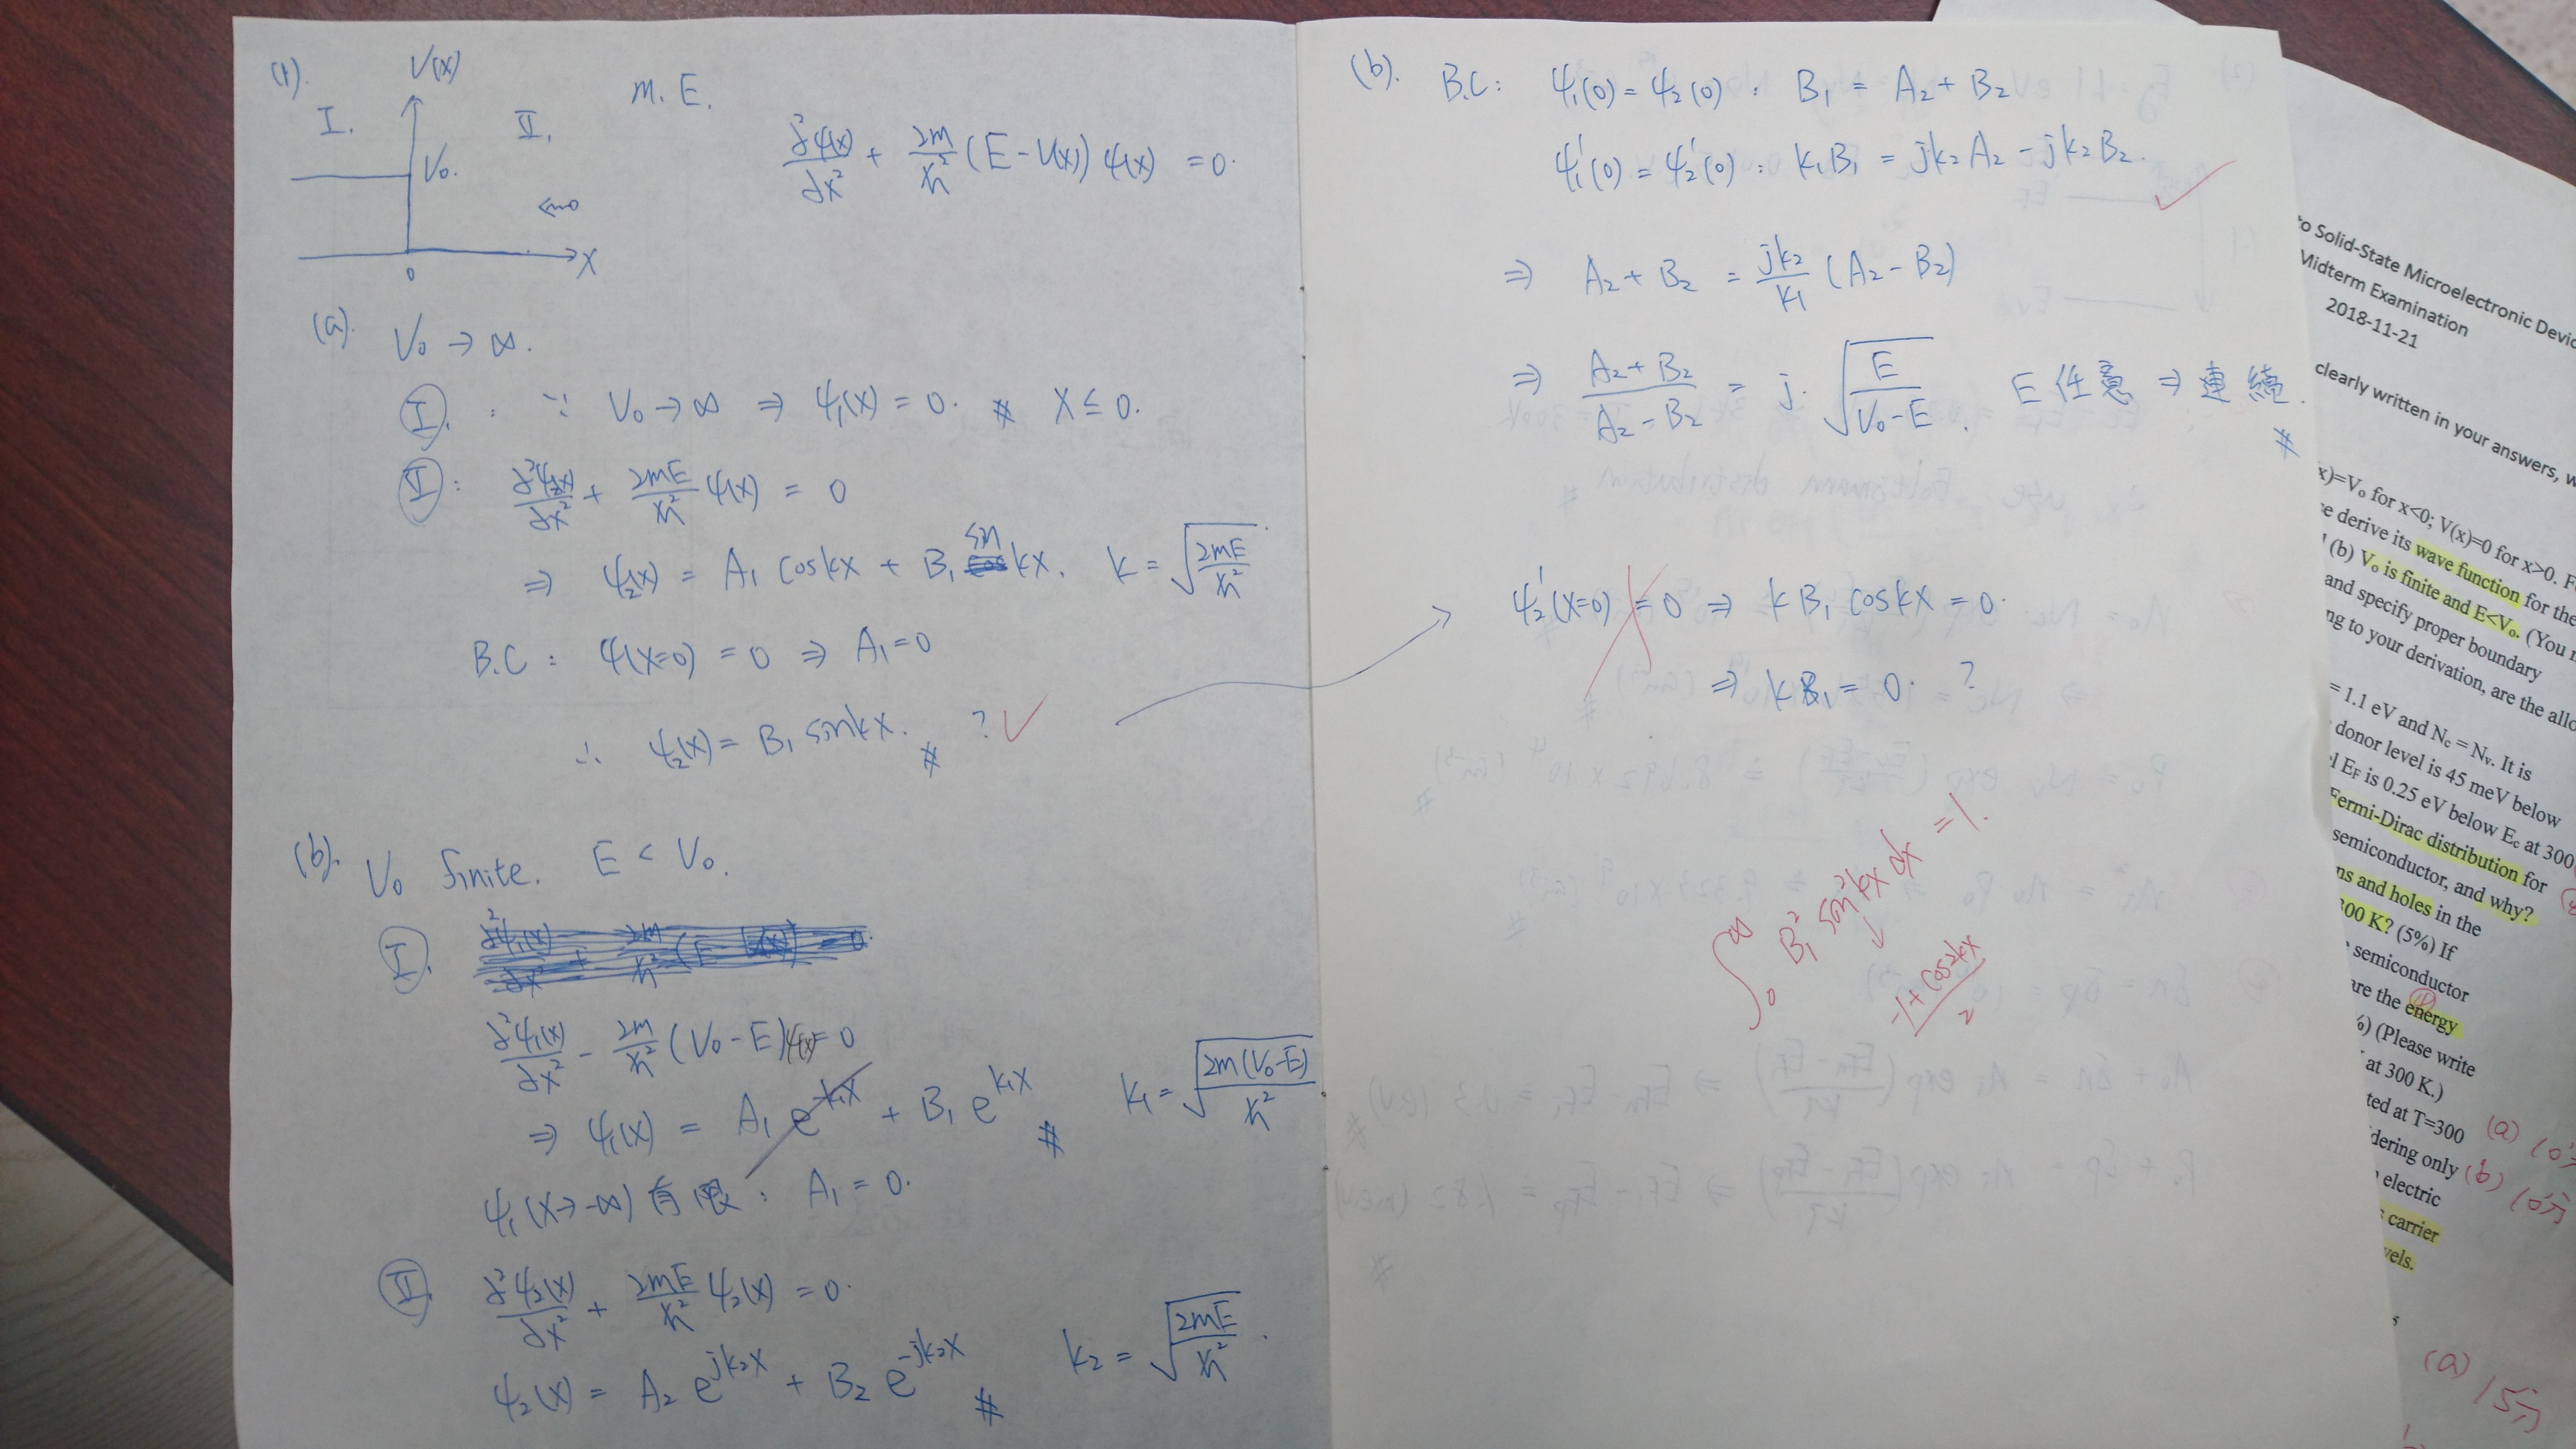 (1).
V(x)
m. E.
I.
II.
V₀.
∂²ψ(x)/∂x² + 2m/ħ² (E - V(x)) ψ(x) = 0.
0
x
(a). V₀ → ∞.
I. : ∵ V₀ → ∞ ⇒ ψ₁(x) = 0. # x ≤ 0.
II : ∂²ψ₂(x)/∂x² + 2mE/ħ² ψ(x) = 0
⇒ ψ₂(x) = A₁ cos kx + B₁ sin kx. k = √(2mE/ħ²).
B.C : ψ(x=0) = 0 ⇒ A₁ = 0
∴ ψ₂(x) = B₁ sin kx. # ? ✓
(b). V₀ finite. E < V₀.
I.
∂²ψ₁(x)/∂x² - 2m/ħ² (V₀ - E)ψ(x) = 0
⇒ ψ₁(x) = A₁ e^(-k₁x) + B₁ e^(k₁x) # k₁ = √(2m(V₀-E)/ħ²).
ψ₁(x→-∞) 有限 : A₁ = 0.
II. ∂²ψ₂(x)/∂x² + 2mE/ħ² ψ₂(x) = 0.
ψ₂(x) = A₂ e^(jk₂x) + B₂ e^(-jk₂x) # k₂ = √(2mE/ħ²).
(b). B.C : ψ₁(0) = ψ₂(0) : B₁ = A₂ + B₂
ψ₁'(0) = ψ₂'(0) : k₁B₁ = jk₂A₂ - jk₂B₂. ✓
⇒ A₂ + B₂ = jk₂/k₁ (A₂ - B₂)
⇒ (A₂ + B₂)/(A₂ - B₂) = j. √(E/(V₀-E)). E 任意 ⇒ 連續. #
ψ₂'(x=0) = 0 ⇒ k B₁ cos kx = 0.
⇒ k B₁ = 0. ?
∫₀^∞ B₁² sin²kx dx = 1.
↓
(-1 + cos2kx)/2
to Solid-State Microelectronic Devic
Midterm Examination
2018-11-21
clearly written in your answers, w
x)=V₀ for x<0; V(x)=0 for x>0. F
e derive its wave function for the
(b) V₀ is finite and E<V₀. (You
and specify proper boundary
ng to your derivation, are the allo
= 1.1 eV and Nc = Nv. It is
donor level is 45 meV below
l EF is 0.25 eV below Ec at 300
Fermi-Dirac distribution for
semiconductor, and why?
ns and holes in the
300 K? (5%) If
semiconductor
are the energy
%) (Please write
at 300 K.)
ted at T=300
dering only
electric
carrier
vels.
(a)
(b)
(a) 15分